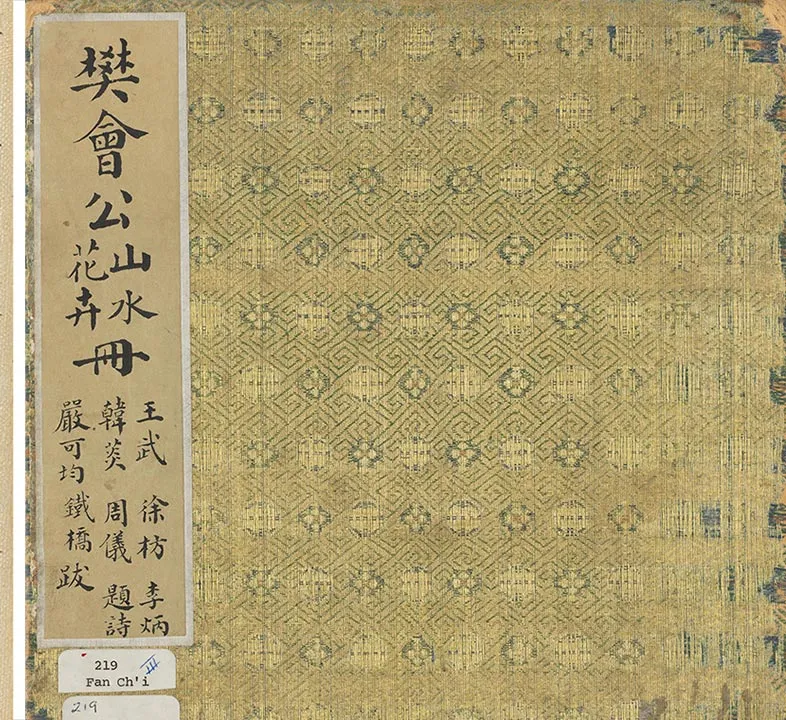 樊會公
山水
花卉
冊
王武 徐枋 李炳
韓菼 周儀 題詩
嚴可均鐵橋跋
219 III
Fan Ch'i
219